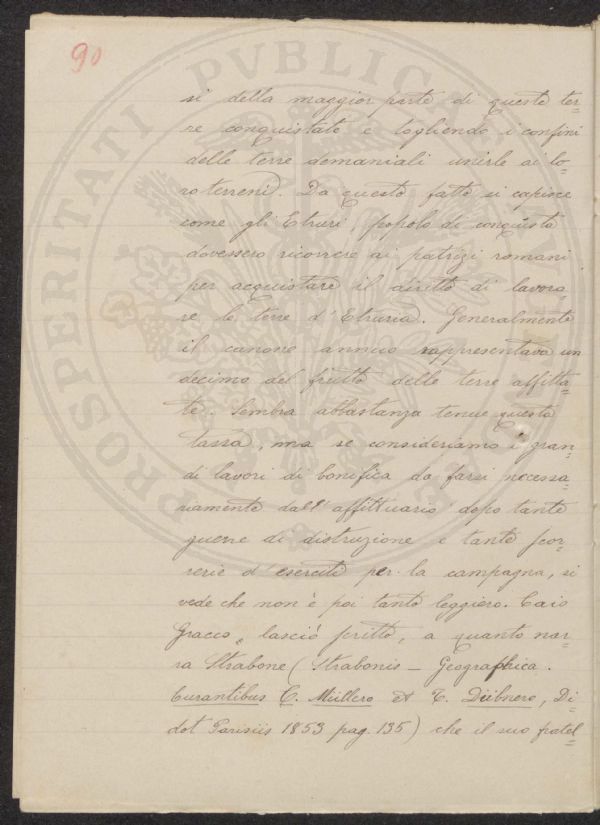 90
si della maggior parte di queste ter=
re conquistate e togliendo i confini
delle terre demaniali unirle ai lo=
ro terreni. Da questo fatto si capisce
come gli Etruri, popolo di conquista
dovessero ricorrere ai patrizi romani
per acquistare il diritto di lavora=
re le terre d'Etruria. Generalmente
il canone annuo rappresentava un
decimo del frutto delle terre affitta=
te. Sembra abbastanza tenue questa
tassa, ma se consideriamo i gran=
di lavori di bonifica da farsi necessa=
riamente dall'affittuario dopo tante
guerre di distruzione e tante scor=
rerie d'eserciti per la campagna, si
vede che non è poi tanto leggiero. Caio
Gracco, lasciò scritto, a quanto nar=
ra Strabone (Strabonis - Geographica.
Curantibus C. Müllero et T. Dübnero, Di=
dot Parisiis 1853 pag. 135) che il suo fratel=
PROSPERITATI PVBLICAE